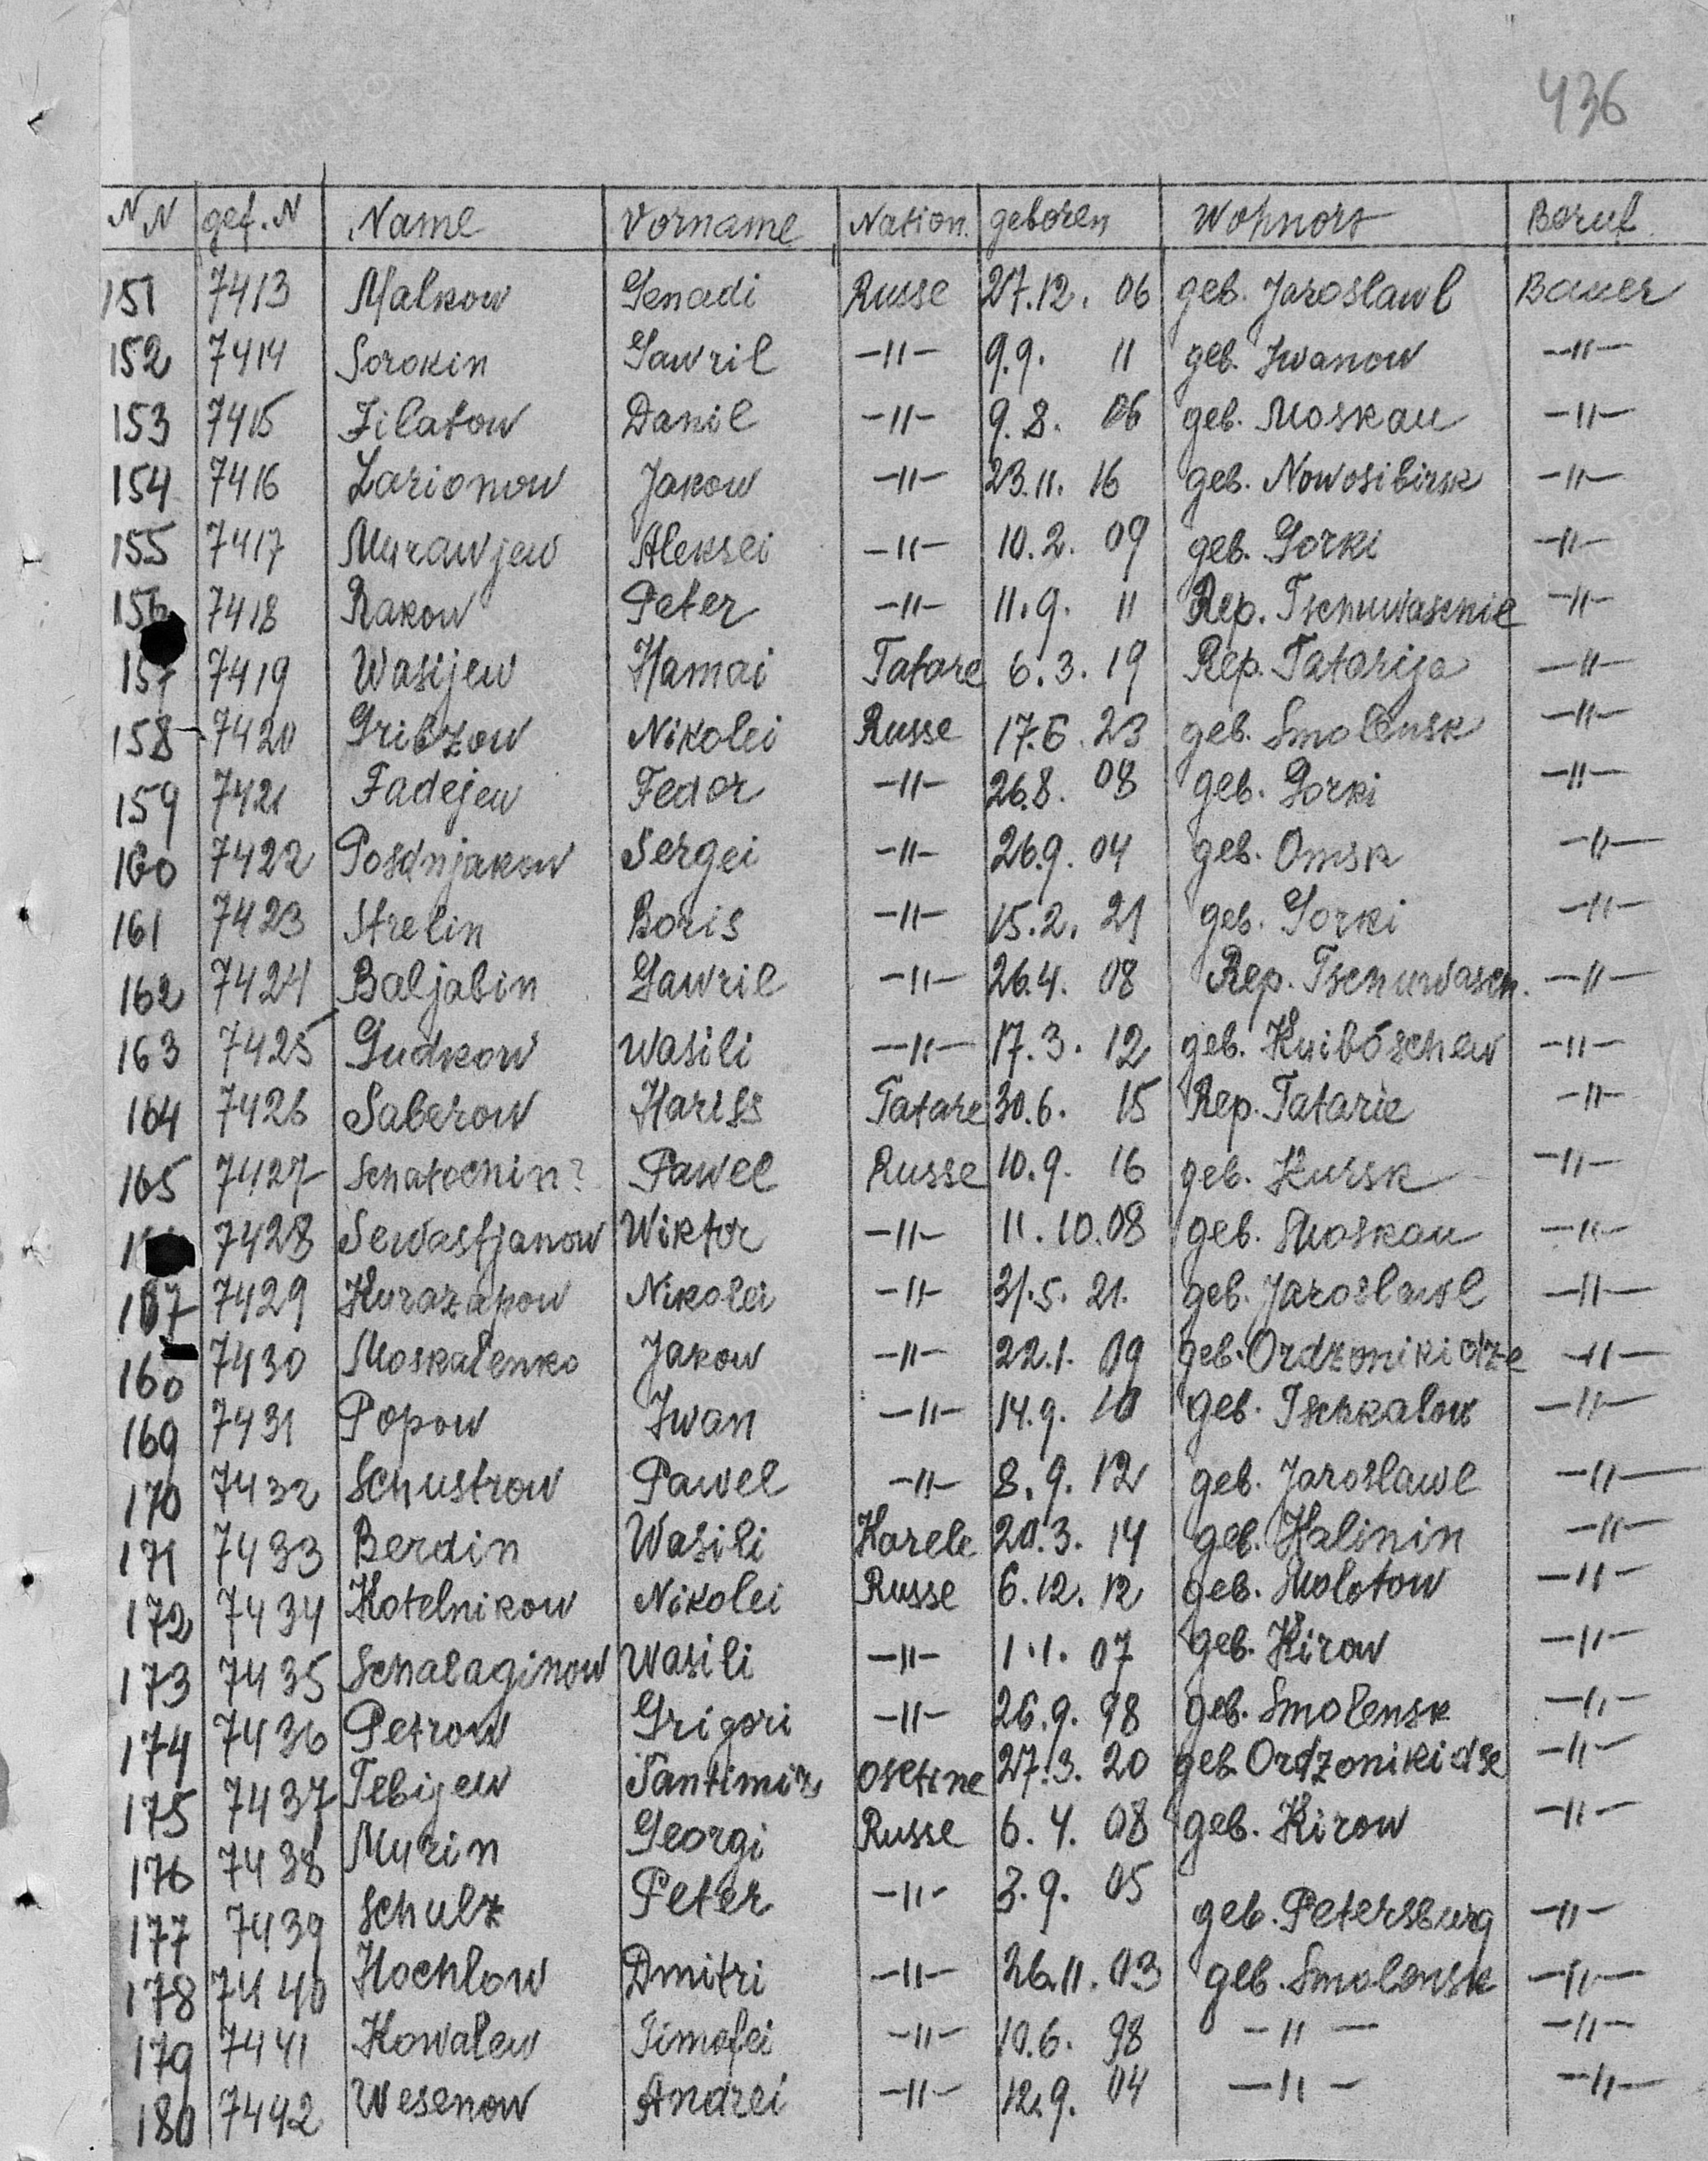 436
NN gef.N Name Vorname Nation. geboren Wohnort Beruf
151 7413 Malkow Genadi Russe 27.12.06 geb. Jaroslawl Bauer
152 7414 Sorokin Gawril -"- 9.9.11 geb. Iwanow -"-
153 7415 Filatow Danil -"- 9.8.06 geb. Moskau -"-
154 7416 Larionow Jakow -"- 23.11.16 geb. Nowosibirsk -"-
155 7417 Murawjew Aleksei -"- 10.2.09 geb. Gorki -"-
156 7418 Rakow Peter -"- 11.9.11 Rep. Tschuwaschie -"-
157 7419 Wasijew Hamai Tatare 6.3.19 Rep. Tatarija -"-
158 7420 Gribzow Nikolei Russe 17.6.23 geb. Smolensk -"-
159 7421 Fadejew Fedor -"- 26.8.08 geb. Gorki -"-
160 7422 Posdnjakow Sergei -"- 26.9.04 geb. Omsk -"-
161 7423 Strelin Boris -"- 15.2.21 geb. Gorki -"-
162 7424 Baljabin Gawril -"- 26.4.08 Rep. Tschuwasch. -"-
163 7425 Gudkow Wasili -"- 17.3.12 geb. Kuibóschew -"-
164 7426 Saberow Hariss Tatare 30.6.15 Rep. Tatarie -"-
165 7427 Schatochin? Pawel Russe 10.9.16 geb. Kursk -"-
7428 Sewastjanow Wiktor -"- 11.10.08 geb. Moskau -"-
167 7429 Kurazapow Nikolei -"- 31.5.21. geb. Jaroslawl -"-
160 7430 Moskalenko Jakow -"- 22.1.09 geb. Ordzonikidze -"-
169 7431 Popow Iwan -"- 14.9.10 geb. Tschkalow -"-
170 7432 Schustrow Pawel -"- 8.9.12 geb. Jaroslawl -"-
171 7433 Berdin Wasili Karele 20.3.14 geb. Kalinin -"-
172 7434 Kotelnikow Nikolei Russe 6.12.12 geb. Molotow -"-
173 7435 Schalaginow Wasili -"- 1.1.07 geb. Kirow -"-
174 7436 Petrow Grigori -"- 26.9.98 geb. Smolensk -"-
175 7437 Tebijew Tantimir Osetine 27.3.20 geb. Ordzonikidse -"-
176 7438 Murin Georgi Russe 6.4.08 geb. Kirow -"-
177 7439 Schulz Peter -"- 3.9.05 geb. Petersburg -"-
178 7440 Hochlow Dmitri -"- 26.11.03 geb. Smolensk -"-
179 7441 Kowalew Timofei -"- 10.6.98 -"- -"-
180 7442 Wesenow Andrei -"- 12.9.04 -"- -"-